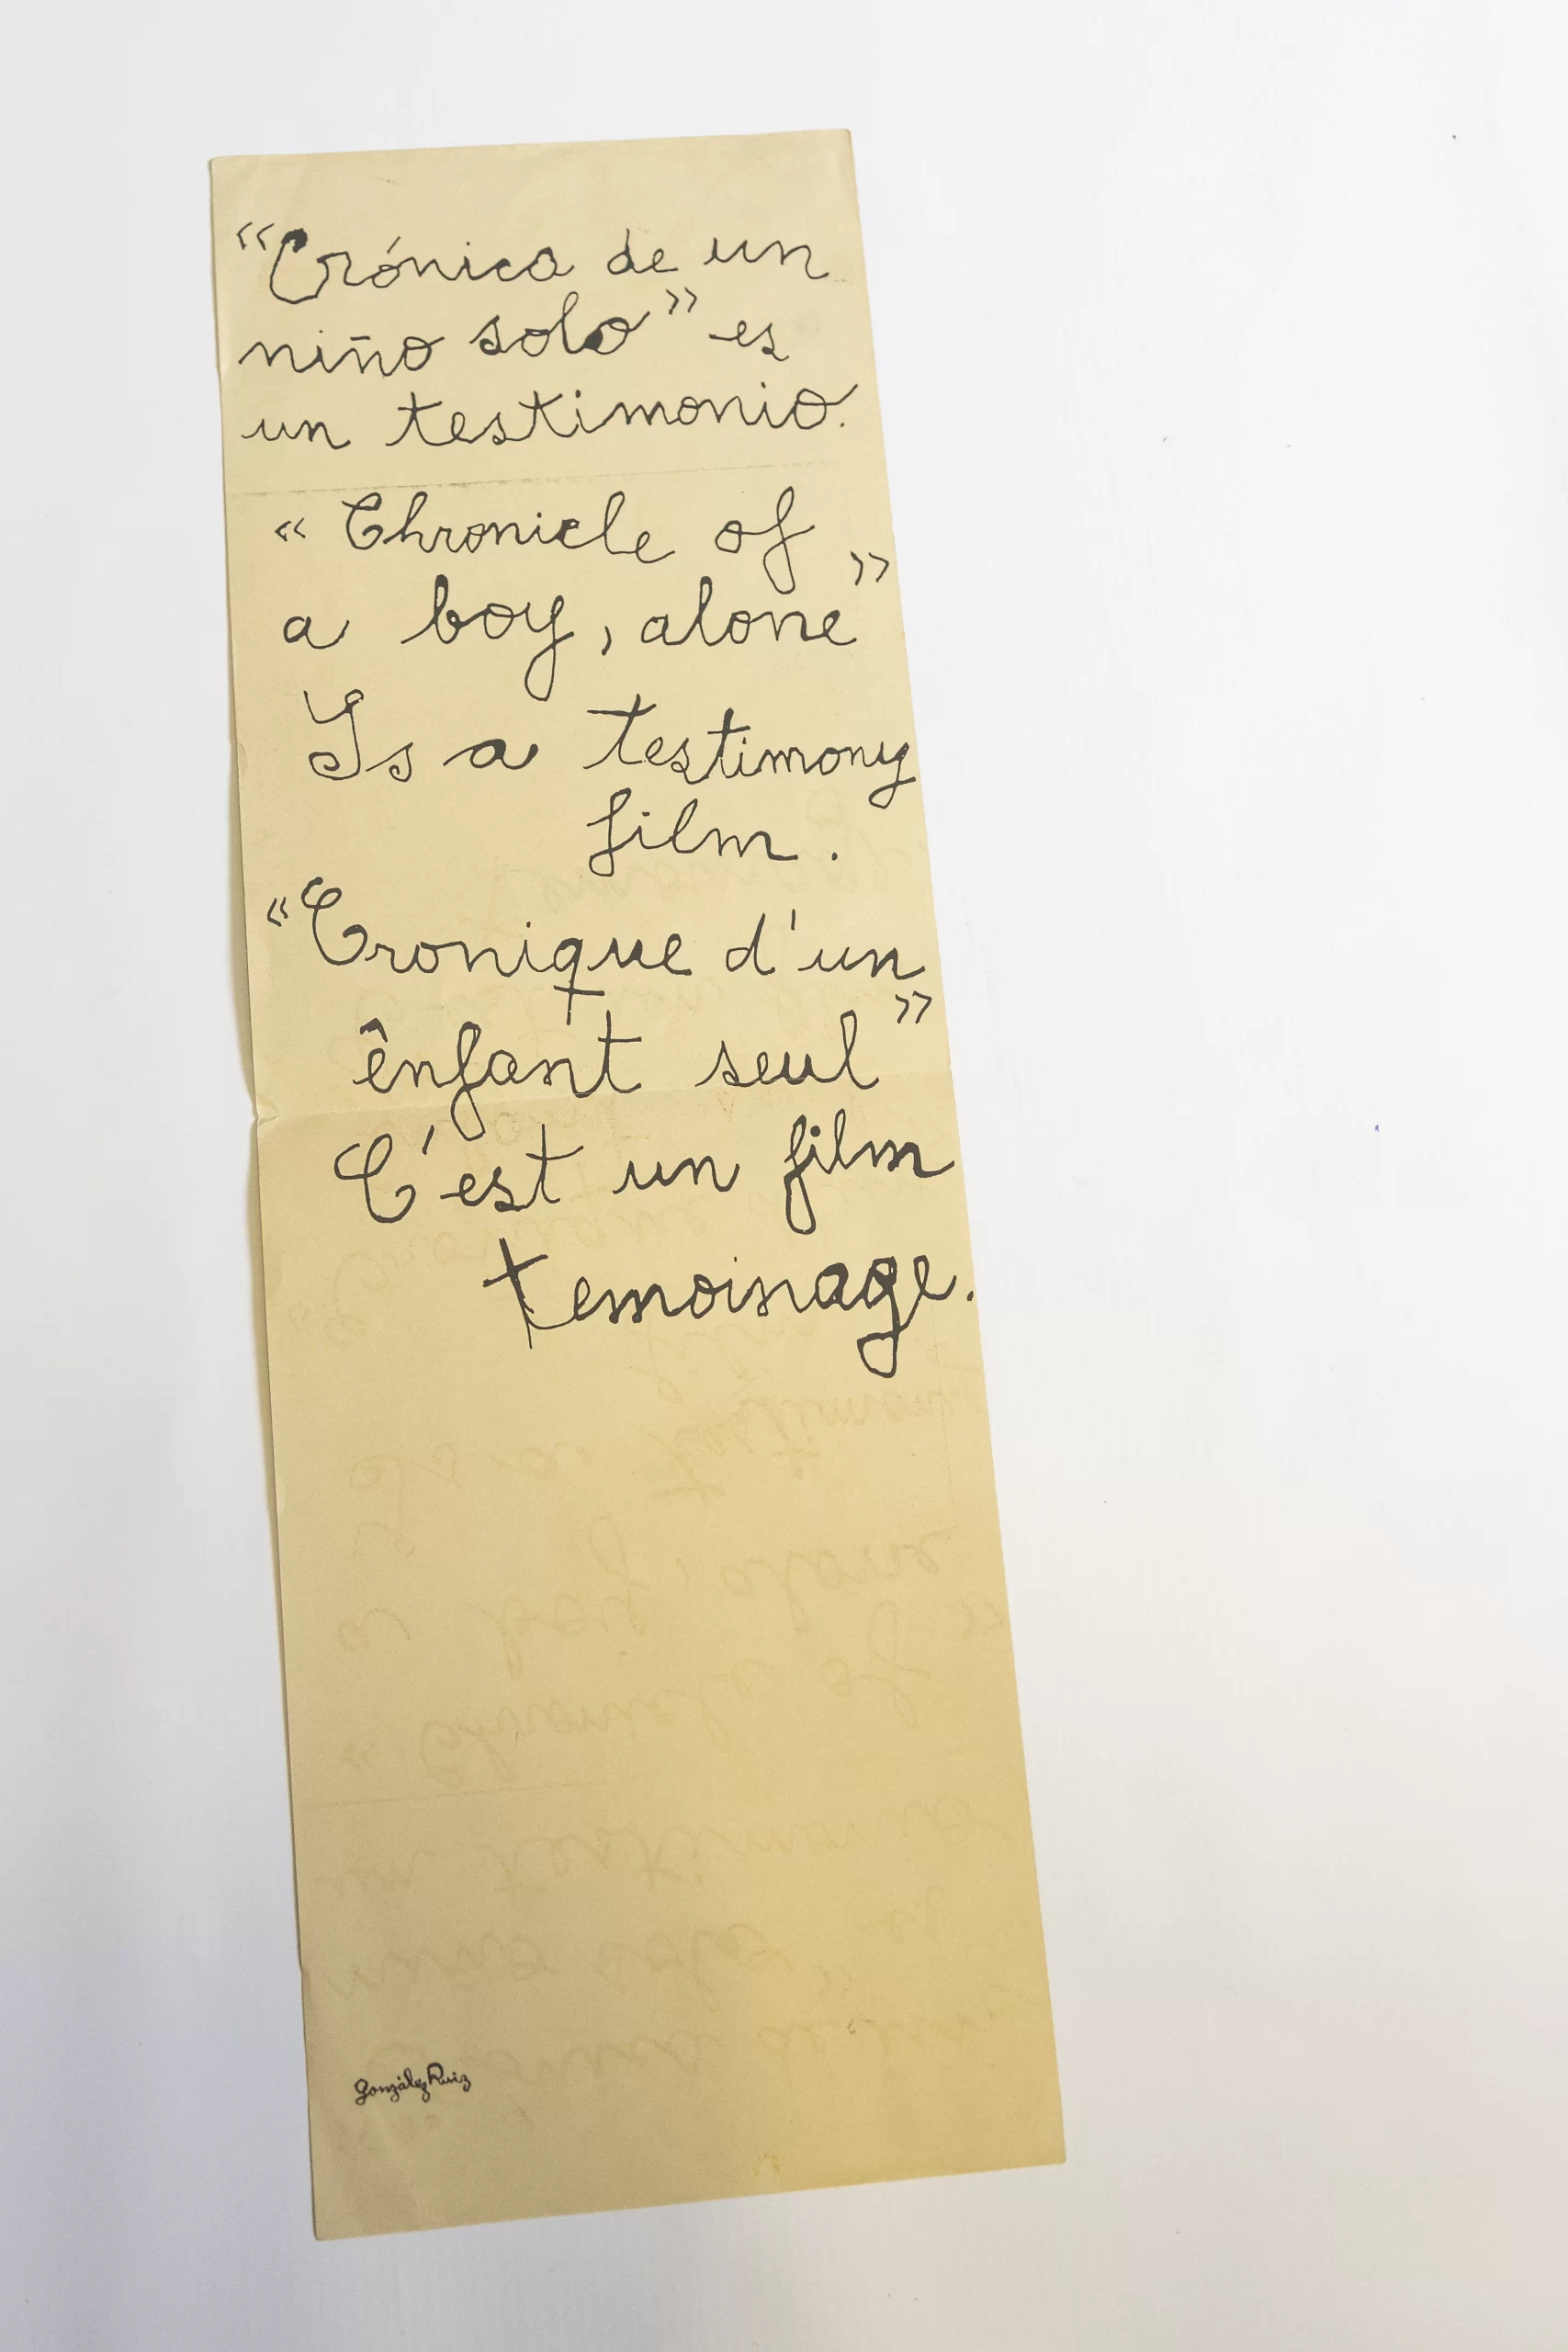 “Crónica de un
niño solo” es
un testimonio.
“Chronicle of
a boy, alone”
Is a testimony
film.
“Cronique d'un
ênfant seul”
C'est un film
temoinage.
González Ruiz